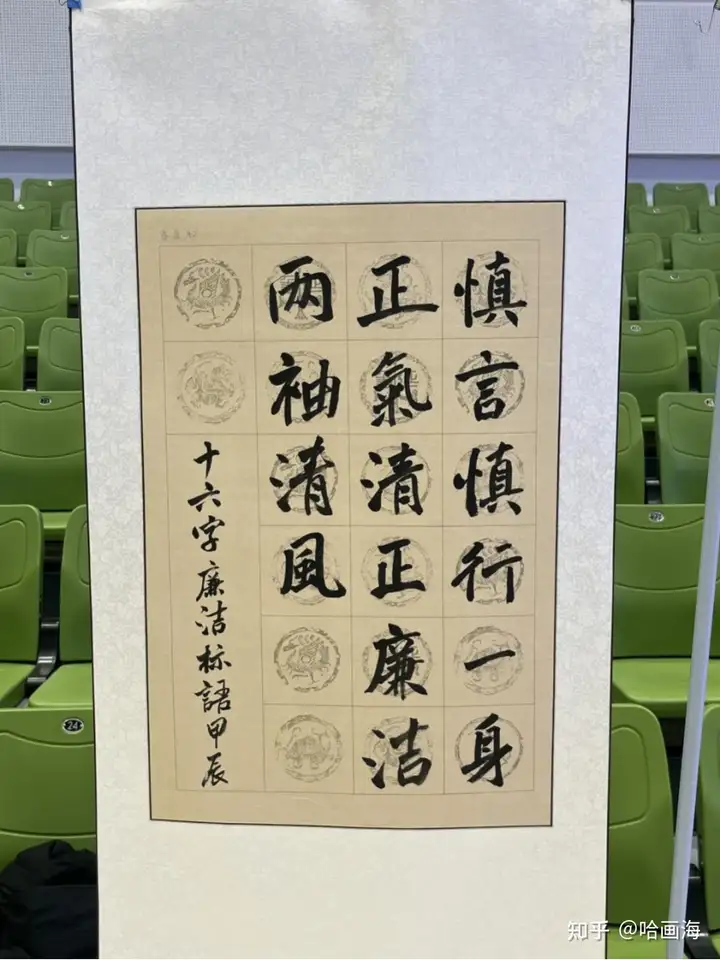 慎言慎行一身
正氣清正廉洁
两袖清風
十六字廉洁标語甲辰
24
知乎 @哈画海